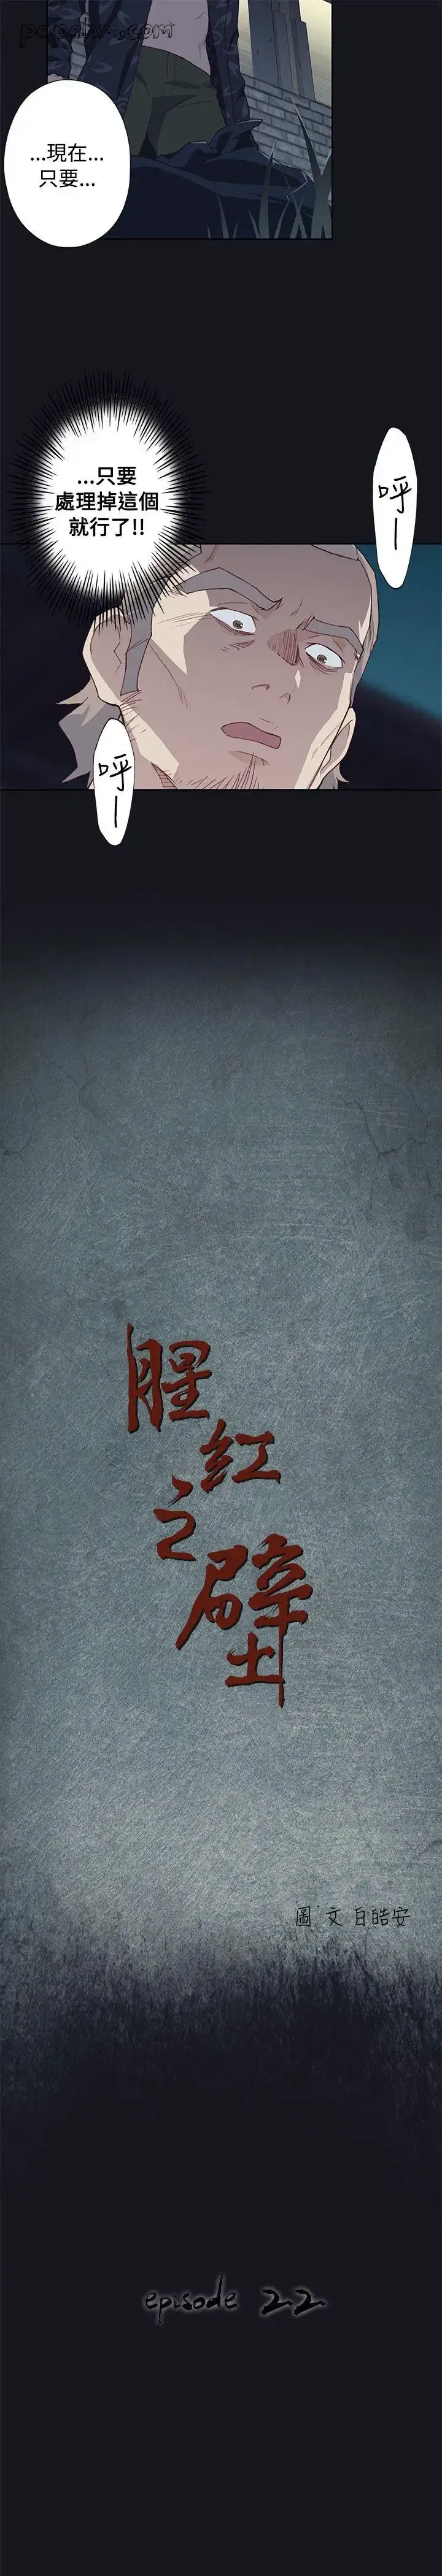 popomh.com
...現在...
只要...
...只要
處理掉這個
就行了!!
呼—
呼—
腥紅之壁
圖·文 白皓安
episode 22